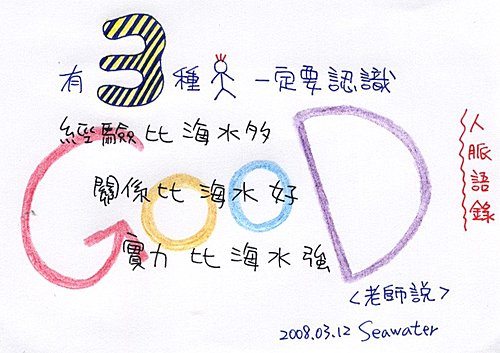 有3種 一定要認識
經驗比海水多
關係比海水好
實力比海水強
GOOD
<老師說>
2008.03.12 Seawater
人脈語錄